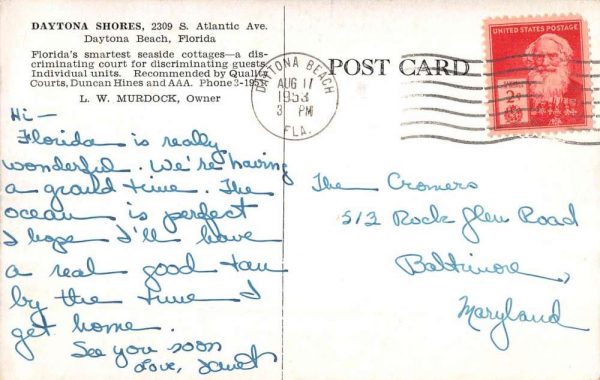 DAYTONA SHORES, 2309 S. Atlantic Ave.
Daytona Beach, Florida
Florida's smartest seaside cottages—a dis-
criminating court for discriminating guests.
Individual units. Recommended by Quality
Courts, Duncan Hines and AAA. Phone 3-1953
L. W. MURDOCK, Owner
Hi—
Florida is really
wonderful. We're having
a grand time. The
ocean is perfect
I hope I'll have
a real good tan
by the time I
get home.
See you soon
Love, Janet
DAYTONA BEACH
AUG 11
1953
3 PM
FLA.
POST CARD
UNITED STATES POSTAGE
2¢
The Cromers
513 Rock Glen Road
Baltimore,
Maryland